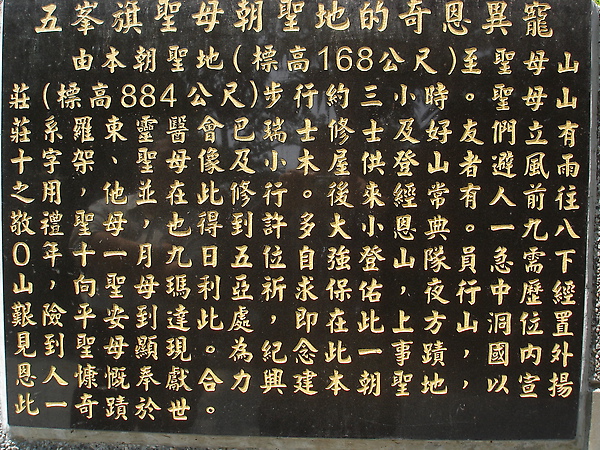 五峯旗聖母朝聖地的奇恩異寵
由本朝聖地(標高168公尺)至聖母山
莊(標高884公尺)步行約三小時。聖母山
莊系羅東靈醫會已瑞士修士及好友們立有
十字架、聖母像及小木屋供登山者避風雨
之用，他並在此修行。後來經常有人前往
敬禮聖母，也得到許多大小恩典。一九八
0年十一月九日五位自強登山隊員急需下
山，向聖母瑪利亞祈求保佑，夜行中歷經
艱險平安到達此處，即在此上方山洞位置
見到聖母顯現。為紀念此一事蹟，國內外
恩人慷慨奉獻合力興建本朝聖地，以宣揚
此一奇蹟於世。